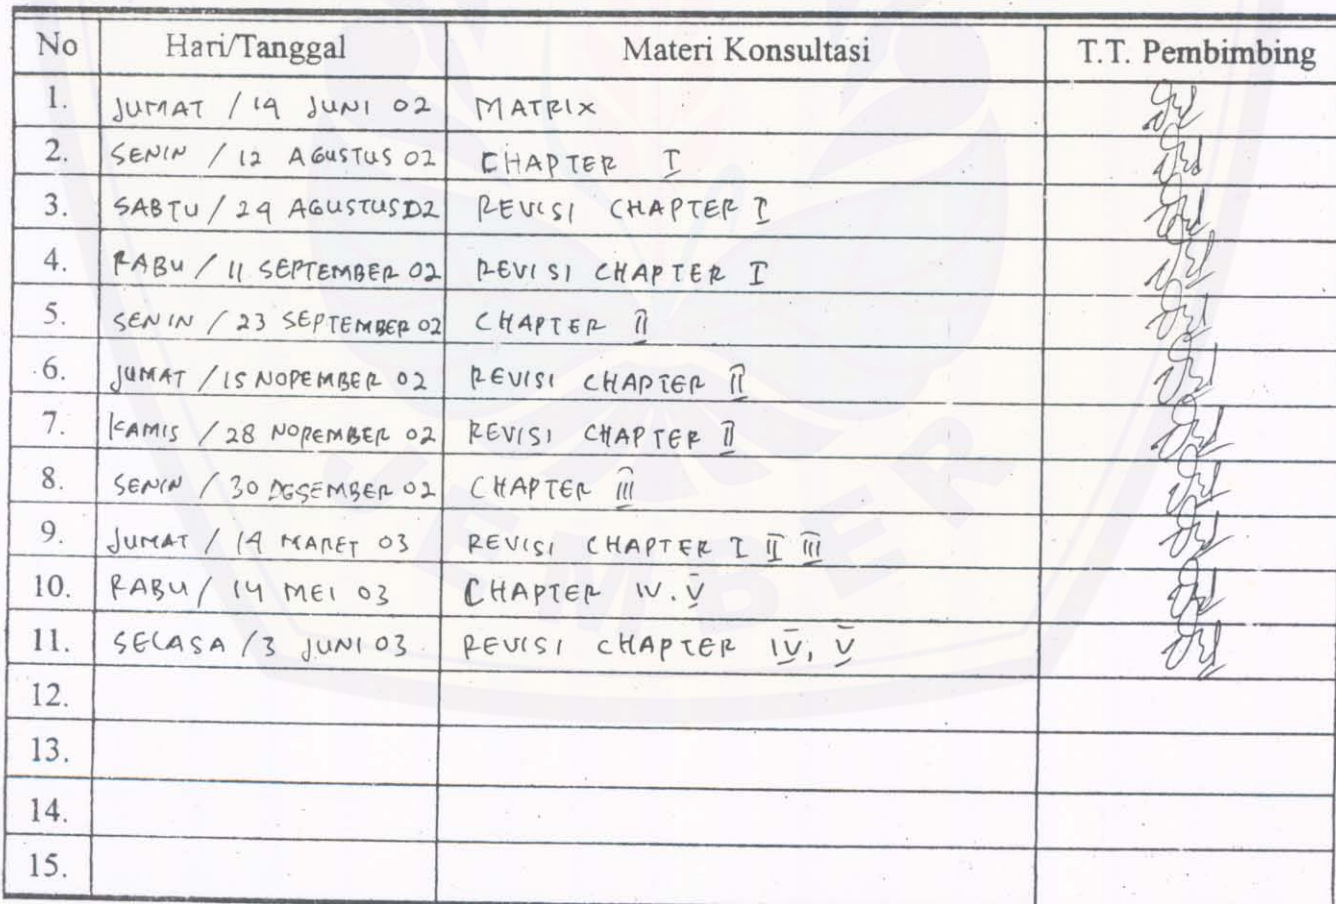 No Hari/Tanggal Materi Konsultasi T.T. Pembimbing
1. JUMAT / 14 JUNI 02 MATRIX
2. SENIN / 12 AGUSTUS 02 CHAPTER I
3. SABTU / 24 AGUSTUS 02 REVISI CHAPTER I
4. RABU / 11 SEPTEMBER 02 REVISI CHAPTER I
5. SENIN / 23 SEPTEMBER 02 CHAPTER II
6. JUMAT / 15 NOPEMBER 02 REVISI CHAPTER II
7. KAMIS / 28 NOPEMBER 02 REVISI CHAPTER II
8. SENIN / 30 DESEMBER 02 CHAPTER III
9. JUMAT / 14 MARET 03 REVISI CHAPTER I II III
10. RABU / 14 MEI 03 CHAPTER IV. V
11. SELASA / 3 JUNI 03 REVISI CHAPTER IV, V
12.
13.
14.
15.
JEMBER